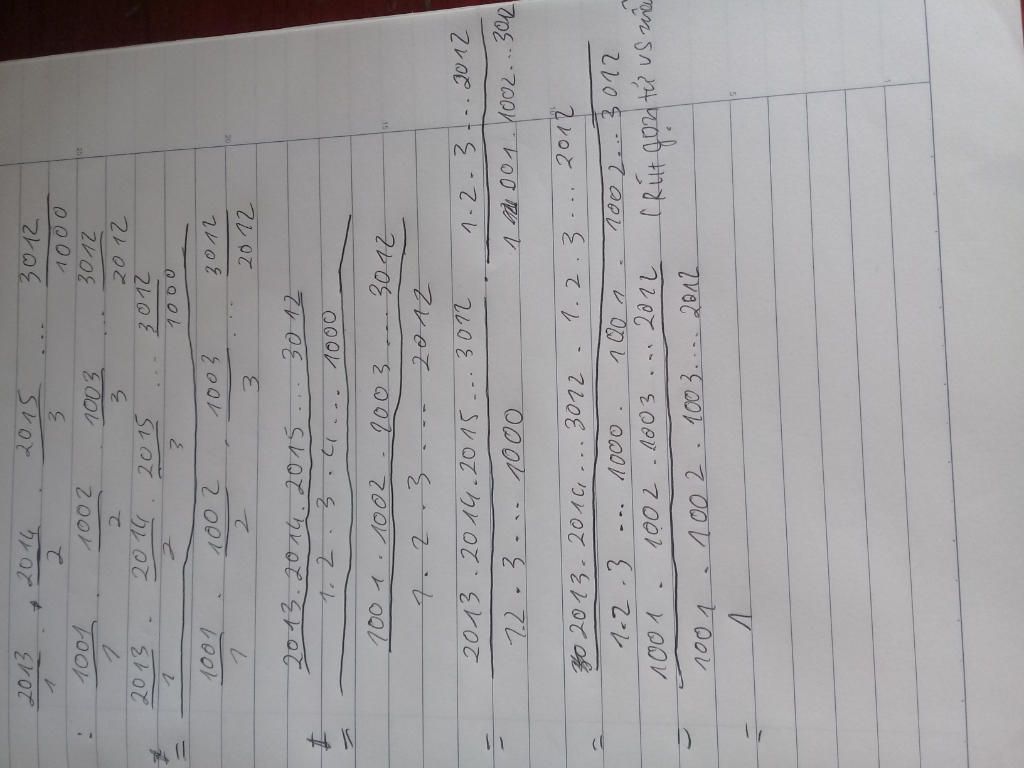 2013/1 . 2014/2 . 2015/3 ... 3012/1000
: 1001/1 . 1002/2 . 1003/3 ... 3012/2012
= 2013/1 . 2014/2 . 2015/3 ... 3012/1000
1001/1 . 1002/2 . 1003/3 ... 3012/2012
= 2013.2014.2015...3012
1.2.3.4...1000
1001.1002.1003...3012
1.2.3...2012
= 2013.2014.2015...3012 . 1.2.3...2012
12.3...1000 1001.1002...3012
= 2013.2014...3012.1.2.3...2012
1.2.3...1000.1001.1002...3012
= 1001.1002.1003...2012 (Rút gọn tử
1001.1002.1003...2012
= 1